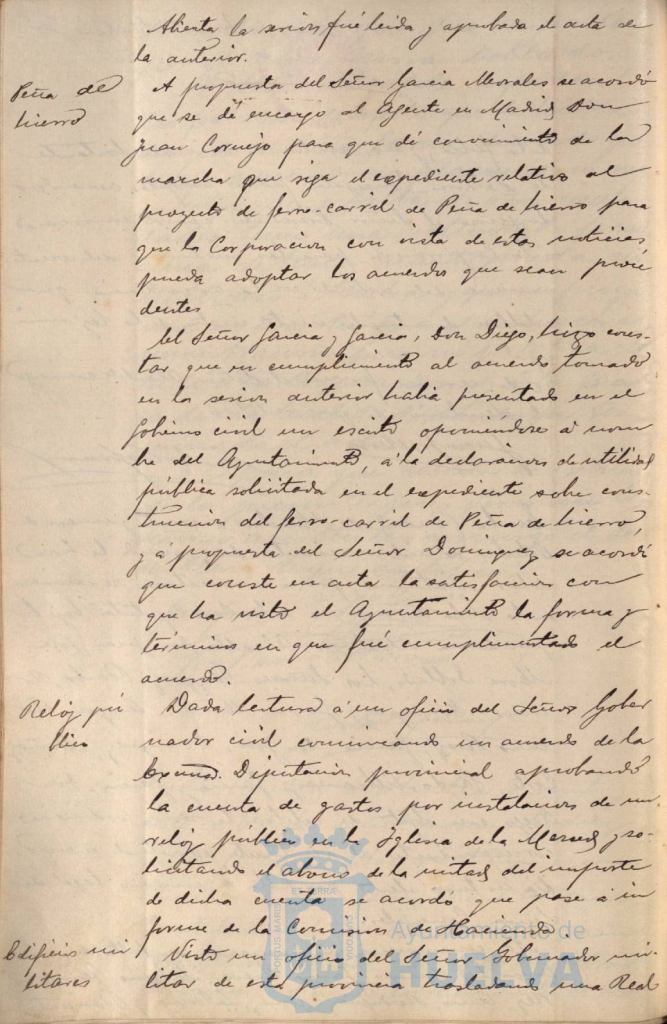 Abierta la sesion fué leida y aprobada el acta de
la anterior.
Peña de
hierro
A propuesta del Señor Garcia Morales se acordó
que se dé encargo al Agente en Madrid Don
Juan Cornejo para que dé conocimiento de la
marcha que siga el expediente relativo al
proyecto de ferro-carril de Peña de hierro para
que la Corporacion con vista de estas noticias
pueda adoptar los acuerdos que sean proce
dentes
El Señor Garcia y Garcia, Don Diego, hizo cons-
tar que en cumplimiento al acuerdo tomado
en la sesion anterior habia presentado en el
Gobierno civil un escrito oponiéndose á nom
bre del Ayuntamiento, á la declaracion de utilidad
pública solicitada en el expediente sobre cons-
truccion del ferro-carril de Peña de hierro,
y á propuesta del Señor Dominguez se acordó
que conste en acta la satisfaccion con
que ha visto el Ayuntamiento la forma y
términos en que fué cumplimentado el
acuerdo.
Reloj pú
blico
Dada lectura á un oficio del Señor Gober
nador civil comunicando un acuerdo de la
Excma. Diputacion provincial aprobando
la cuenta de gastos por instalacion de un
reloj público en la Iglesia de la Merced y so-
licitando el abono de la mitad del importe
de dicha cuenta se acordó que pase á in
forme de la Comision de Hacienda.
Edificios mi
litares
Visto un oficio del Señor Gobernador mi-
litar de esta provincia trasladando una Real
Ayuntamiento de
HUELVA